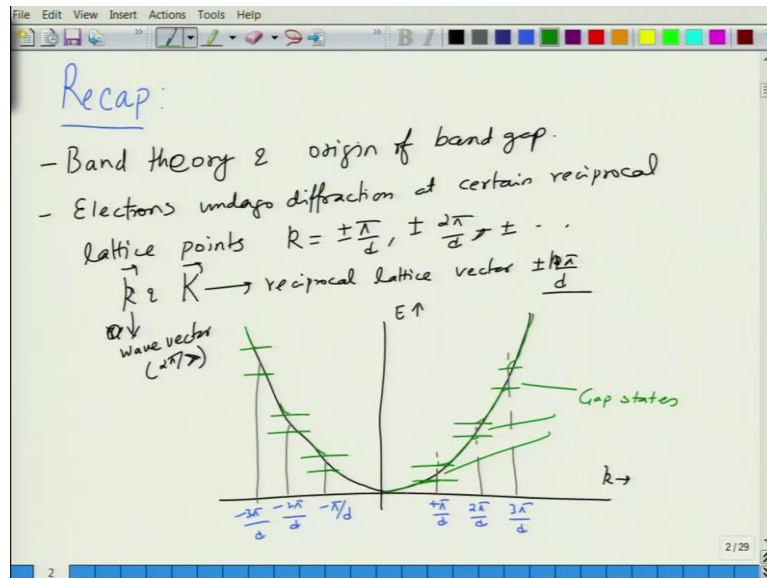 File Edit View Insert Actions Tools Help
Recap:
- Band theory & origin of band gap.
- Electrons undago diffraction at certain reciprocal
lattice points k = ± π/d, ± 2π/d, ± ..
k & K → reciprocal lattice vector ± π/d
wave vector
(2π/λ)
E ↑
Gap states
k →
-3π/d -2π/d -π/d +π/d 2π/d 3π/d
2/29
2